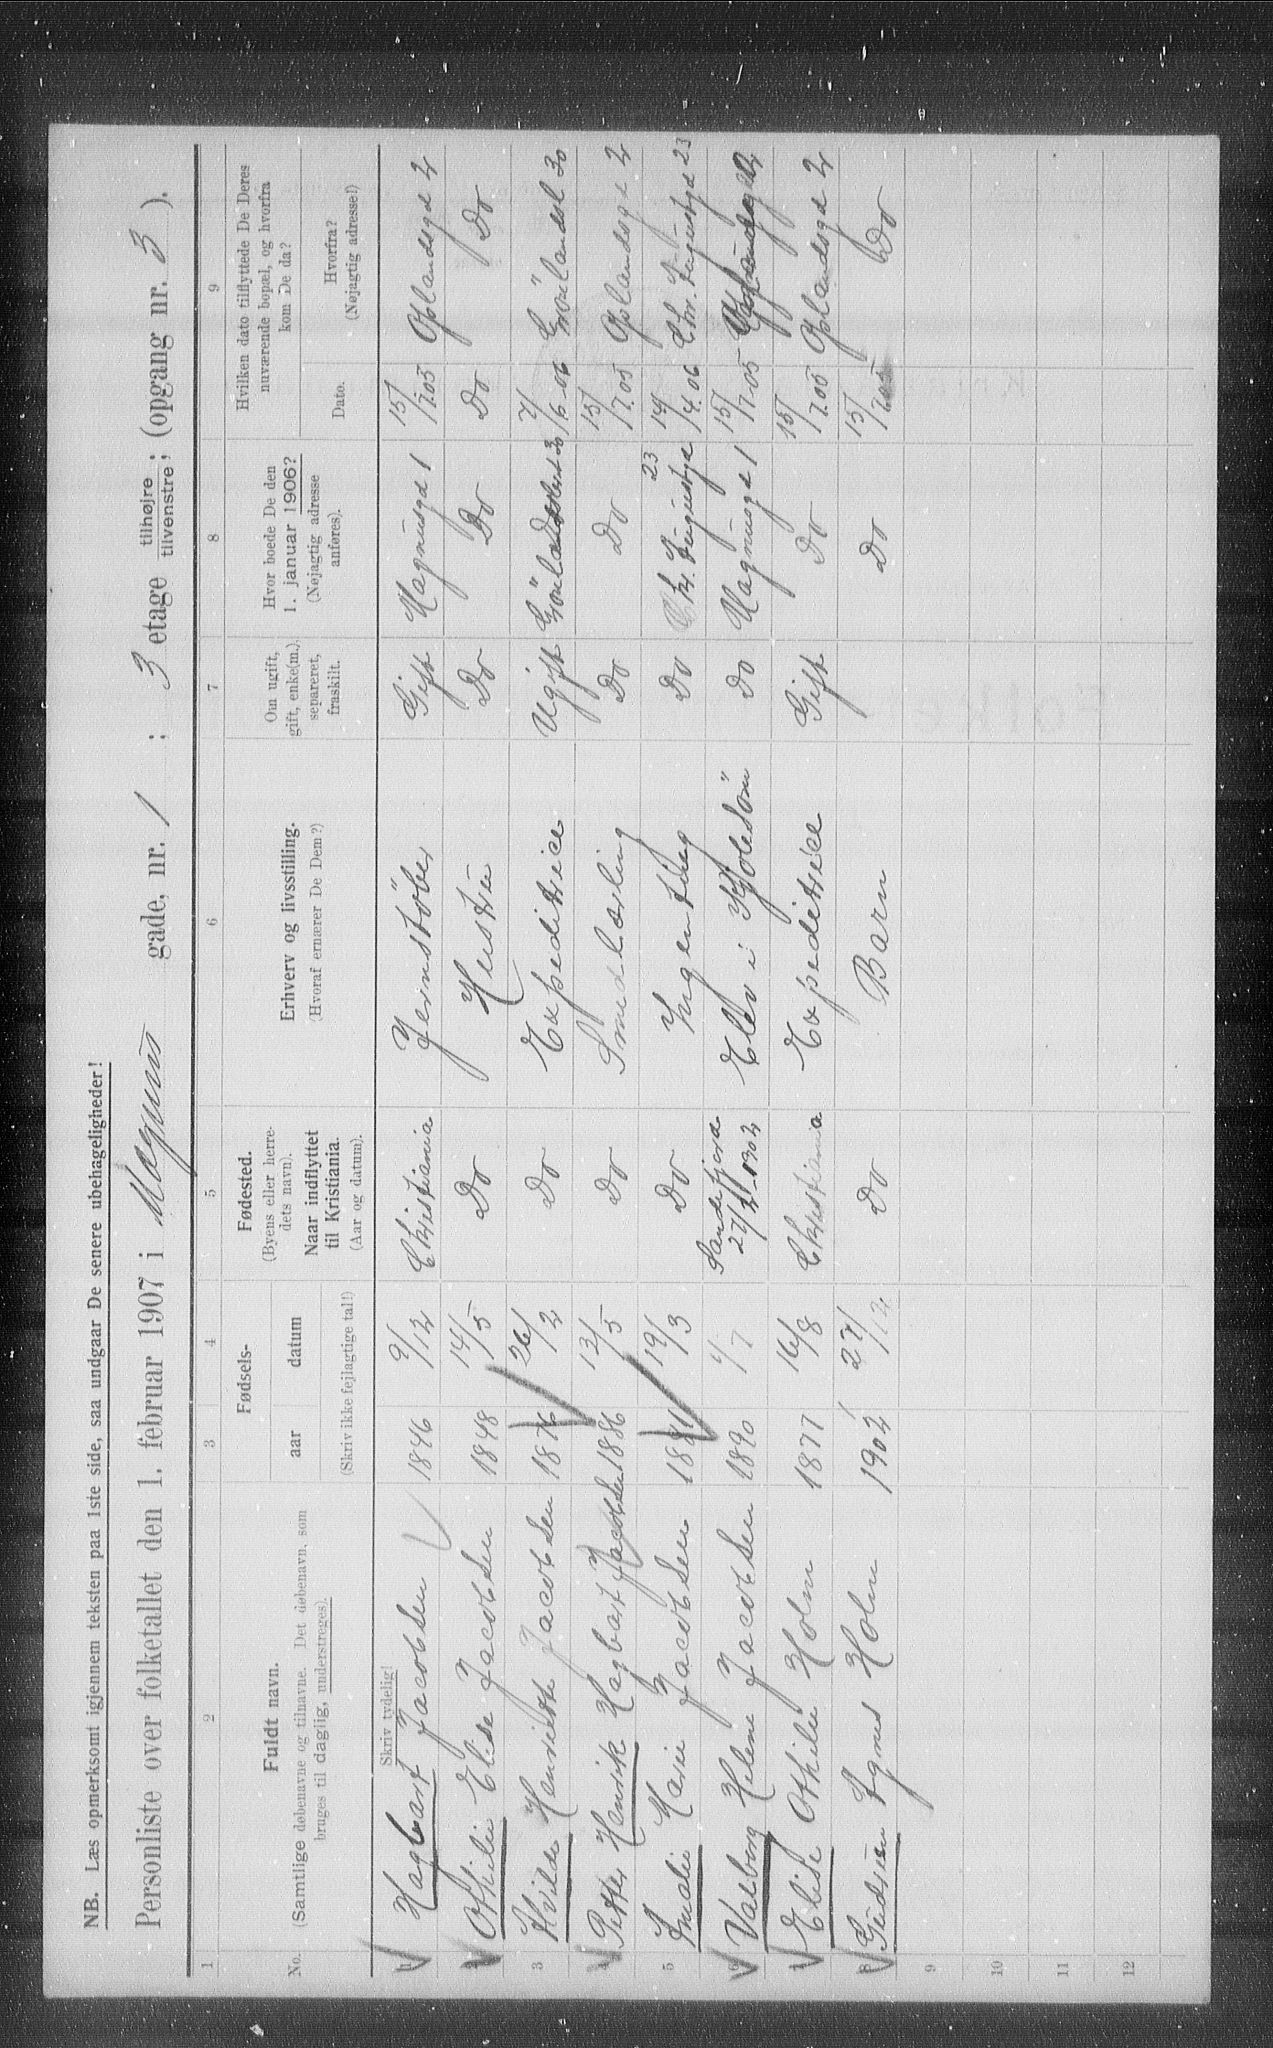 NB. Læs opmerksomt igjennem teksten paa 1ste side, saa undgaar De senere ubehageligheder!
Personliste over folketallet den 1. februar 1907 i Magnus gade, nr. 1 ; 3 etage tilhøjre tilvenstre ; (opgang nr. 3 ).
1 2 3 4 5 6 7 8 9
No.
Fuldt navn.
(Samtlige døbenavne og tilnavne. Det døbenavn, som
bruges til daglig, understreges).
Fødsels-
aar datum
(Skriv ikke fejlagtige tal!)
Fødested.
(Byens eller herre-
dets navn).
Naar indflyttet
til Kristiania.
(Aar og datum).
Erhverv og livsstilling.
(Hvoraf ernærer De Dem?)
Om ugift,
gift, enke(m.)
separeret,
fraskilt.
Hvor boede De den
1. januar 1906?
(Nøjagtig adresse
anføres).
Hvilken dato tilflyttede De Deres
nuværende bopæl, og hvorfra
kom De da?
Dato.
Hvorfra?
(Nøjagtig adresse!)
Skriv tydelig!
1 Hagbart Jacobsen 1846 9/12 Christiania Jernstöber Gift Magnusgd 1 15/12 05 Oplandsgd 2
2 Othilie Elise Jacobsen 1848 14/5 Do Hustru Do Do Do Do
3 Hvilda Henriette Jacobsen 1876 26/2 Do Expeditrice Ugift Grönlandsl 30 7/6 06 Grönlandsl 30
4 Petter Henrik Hagbart Jacobsen 1886 13/5 Do Smedlærling Do Do 15/12 05 Oplandsgd 2
5 Amalie Marie Jacobsen 1881 19/3 Do Ingenting Do Chr. Augustgd 23 14/4 06 Chr. Augustgd 23
6 Valborg Helene Jacobsen 1890 4/7 Sandefjord 27/11 1902 Elev i Kjolesöm Do Magnusgd 1 15/12 05
7 Elise Othilie Holm 1877 16/8 Christiania Expeditrice Gift Do 15/12 05 Oplandsgd 2
8 Gudrun Agnes Holm 1902 27/12 Do Barn Do 15/12 05 Do
9
10
11
12